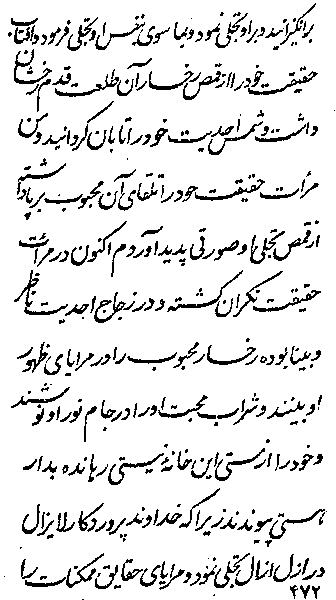 برانگیزانید و بر او تجلی نمود و بما سوی بنفس او تجلی فرمود و افتاب
حقیقت خود را از قمص رخسار آن طلعت قدم رخشان
داشت و شمس احدیت خود را تابان گردانید و من
مرآت حقیقت خود را تلقای آن محبوب بر پا داشته
از قمص تجلی او صورتی پدید آوردم اکنون در مرآت
حقیقت نگران گشته و در زجاج احدیت ناظر
و بینا بوده رخسار محبوب را در مرایای ظهور
او بینند و شراب محبت او را در جام نور او نوشند
و خود را از مستی این خانهٔ نیستی رهانده بدار
هستی پیوندند زیرا که خداوند پروردگار لایزال
در ازل ازال تجلی نمود و مرایای حقایق ممکنات را
۴۷۲